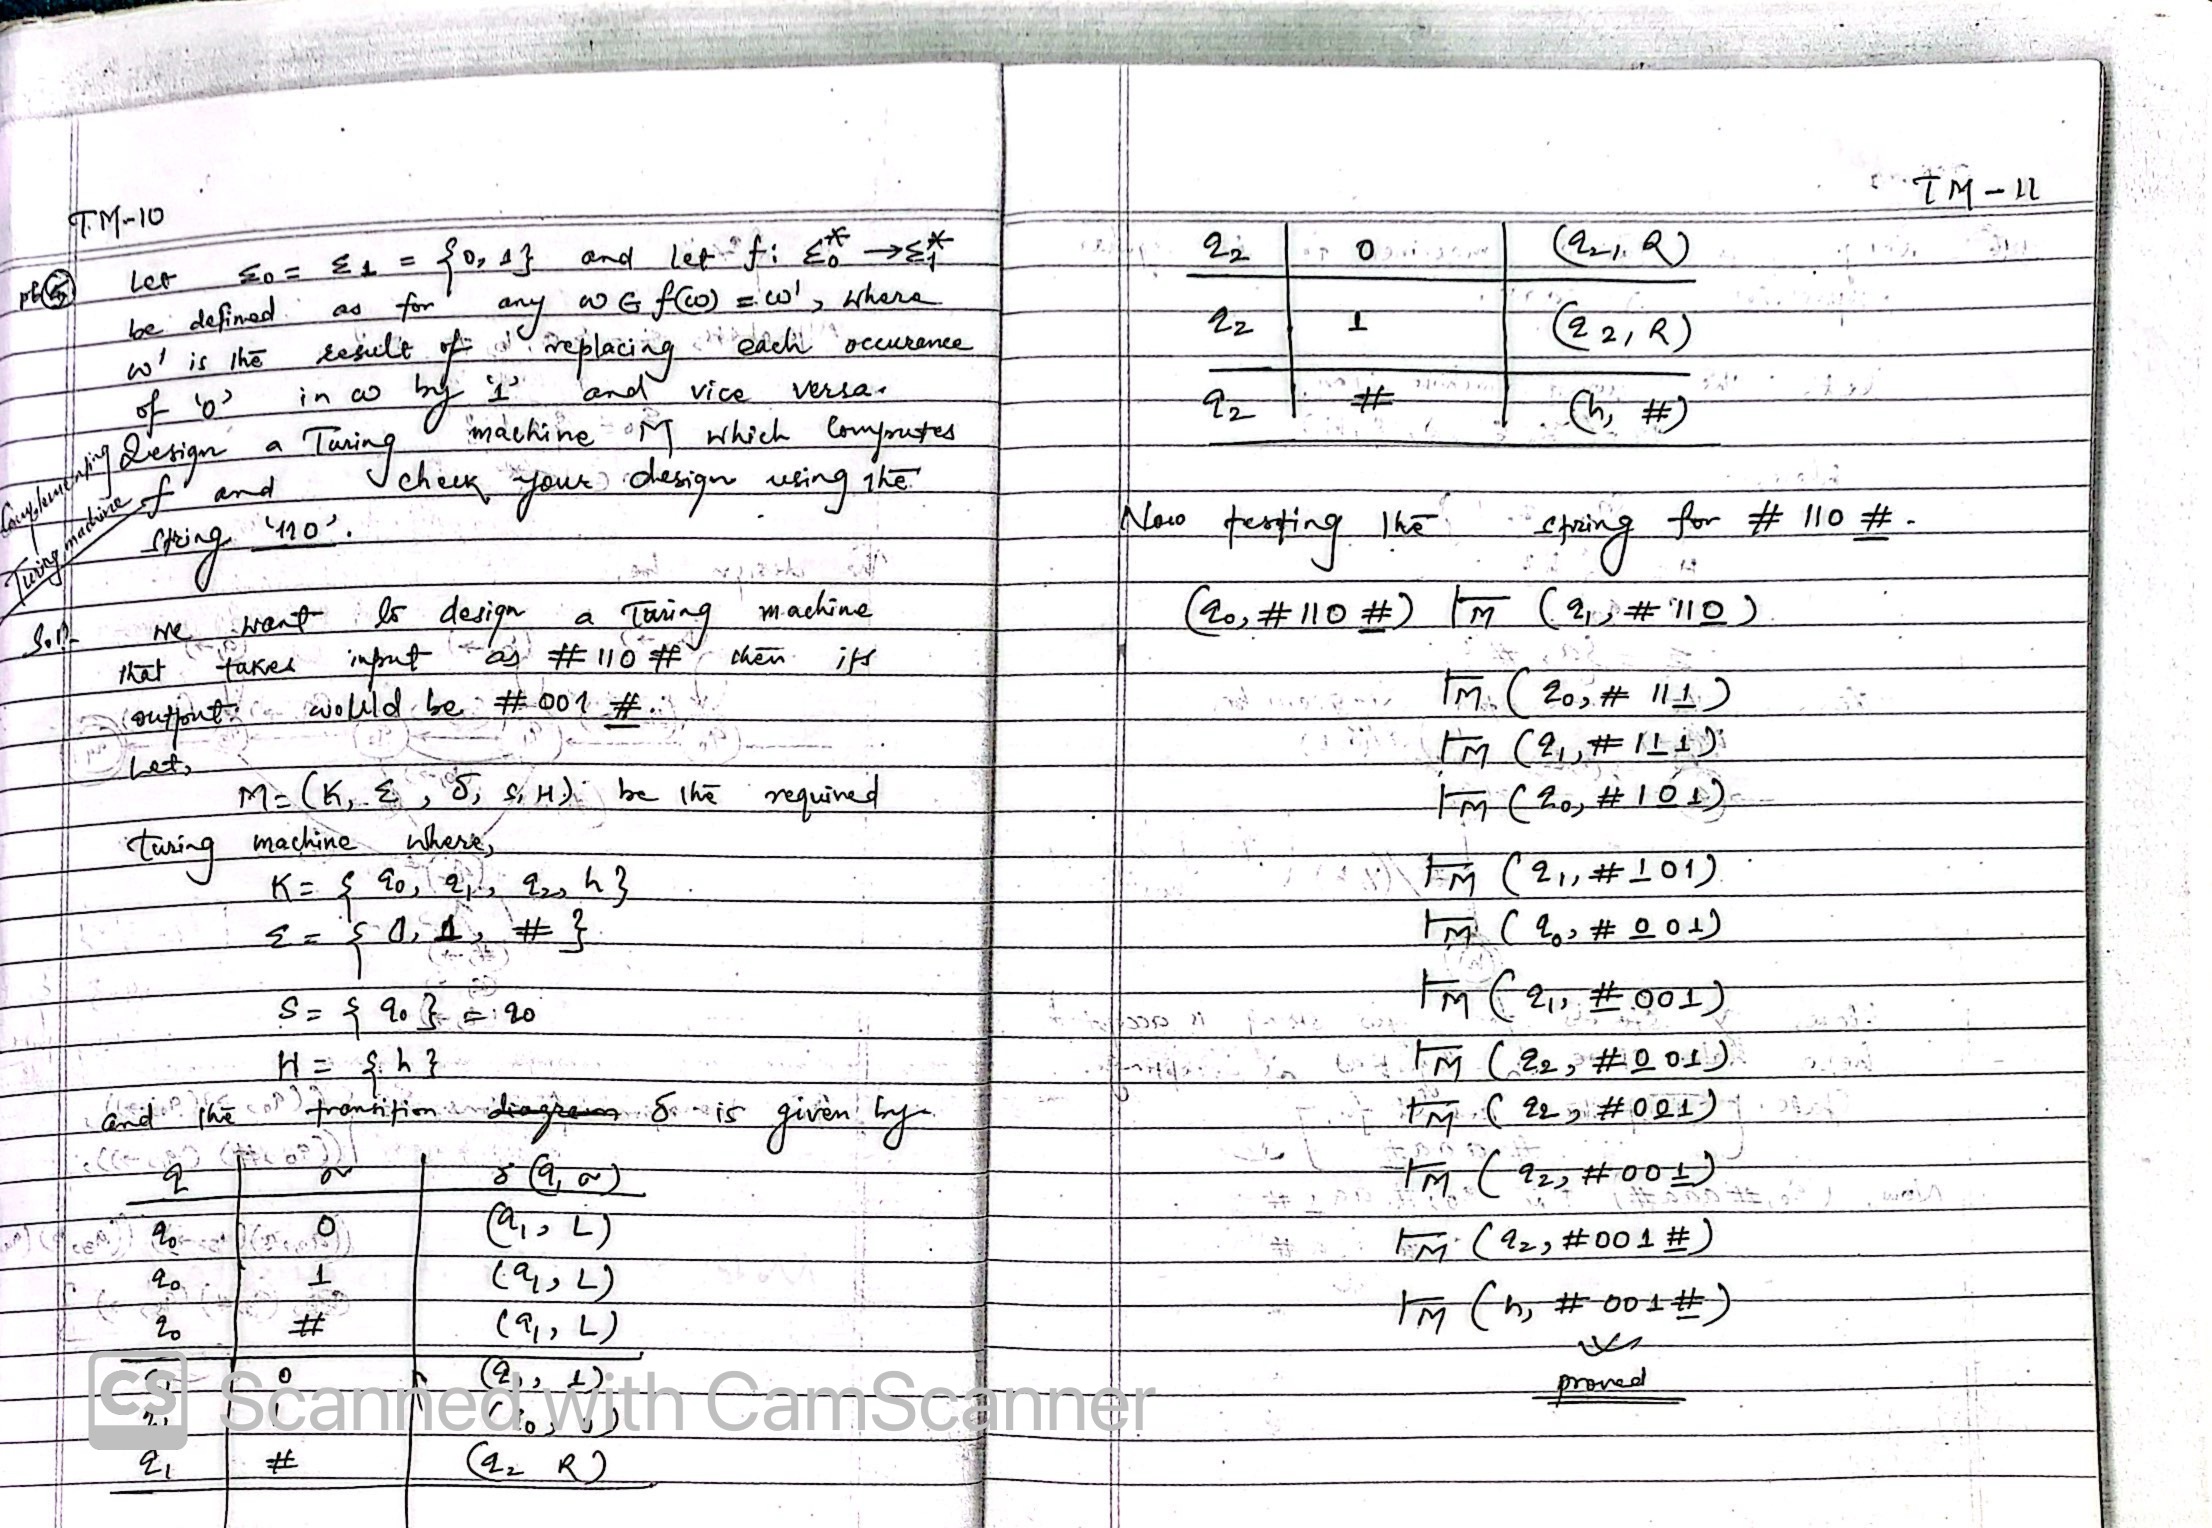 TM-10
pb 5 Let Σ0 = Σ1 = {0, 1} and let f: Σ0* → Σ1*
be defined as for any w ∈ f(w) = w', where
w' is the result of replacing each occurance
of '0' in w by '1' and vice versa.
Design a Turing machine M which computes
f and check your design using the
string '110'.
Complementing
Turing machine
Sol:- we want to design a Turing machine
that takes input as #110# then its
output would be #001#.
Let,
M = (K, Σ, δ, s, H) be the required
turing machine where,
K = { q0, q1, q2, h }
Σ = { 0, 1, # }
S = { q0 } = q0
H = { h }
and the transition diagram δ is given by-
q | σ | δ(q, σ)
q0 | 0 | (q1, L)
q0 | 1 | (q1, L)
q0 | # | (q1, L)
q1 | 0 | 1)
q1
q1 | # | (q2 R)
CS Scanned with CamScanner
TM-11
q2 | 0 | (q2, R)
q2 | 1 | (q2, R)
q2 | # | (h, #)
Now testing the string for #110#.
(q0, #110#) ⊢M (q1, #110)
⊢M (q0, #111)
⊢M (q1, #111)
⊢M (q0, #101)
⊢M (q1, #101)
⊢M (q0, #001)
⊢M (q1, #001)
⊢M (q2, #001)
⊢M (q2, #001)
⊢M (q2, #001)
⊢M (q2, #001#)
⊢M (h, #001#)
proved